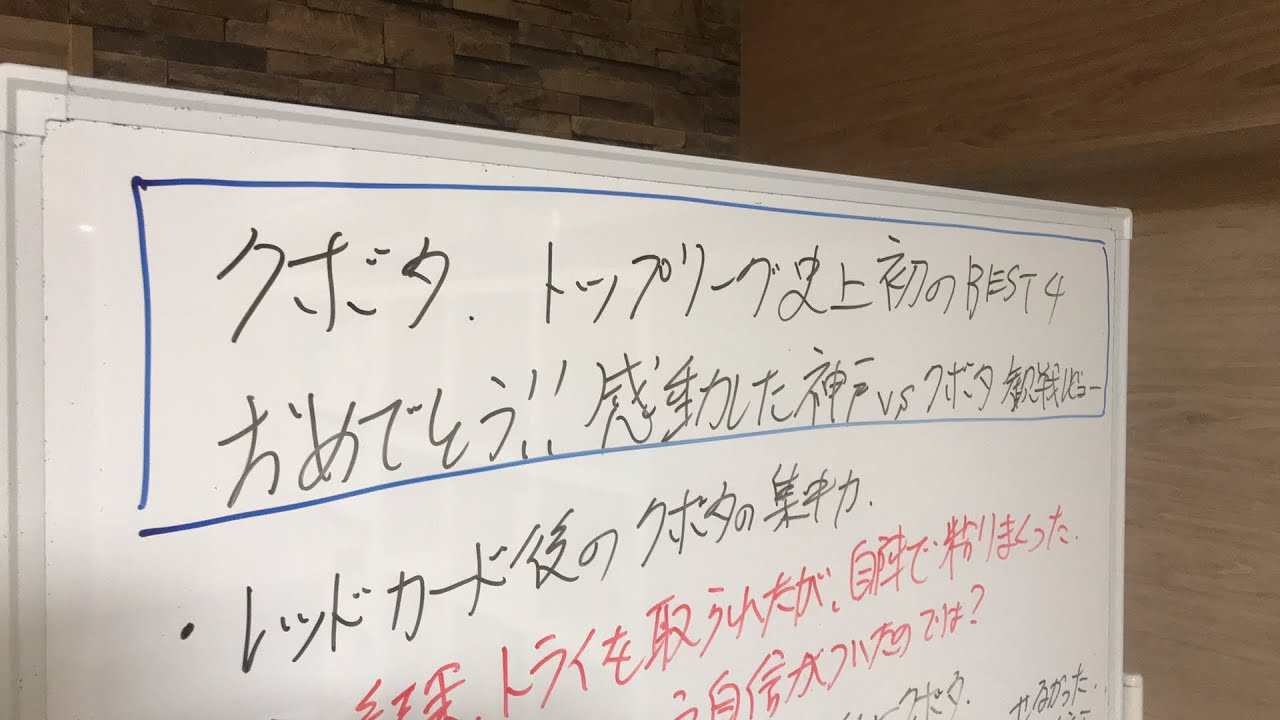 クボタ、トップリーグ史上初のBEST4
おめでとう!! 感動した神戸vsクボタ 観戦レビュー
・レッドカード後のクボタの集中力.
結果、トライを取られたが、自陣で粘りまくった.
自信がついたのでは?
クボタ.
せるかった..